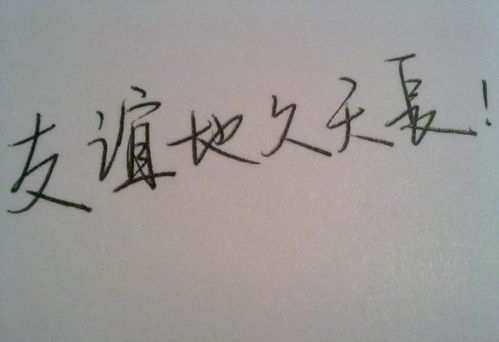 友谊地久天長!